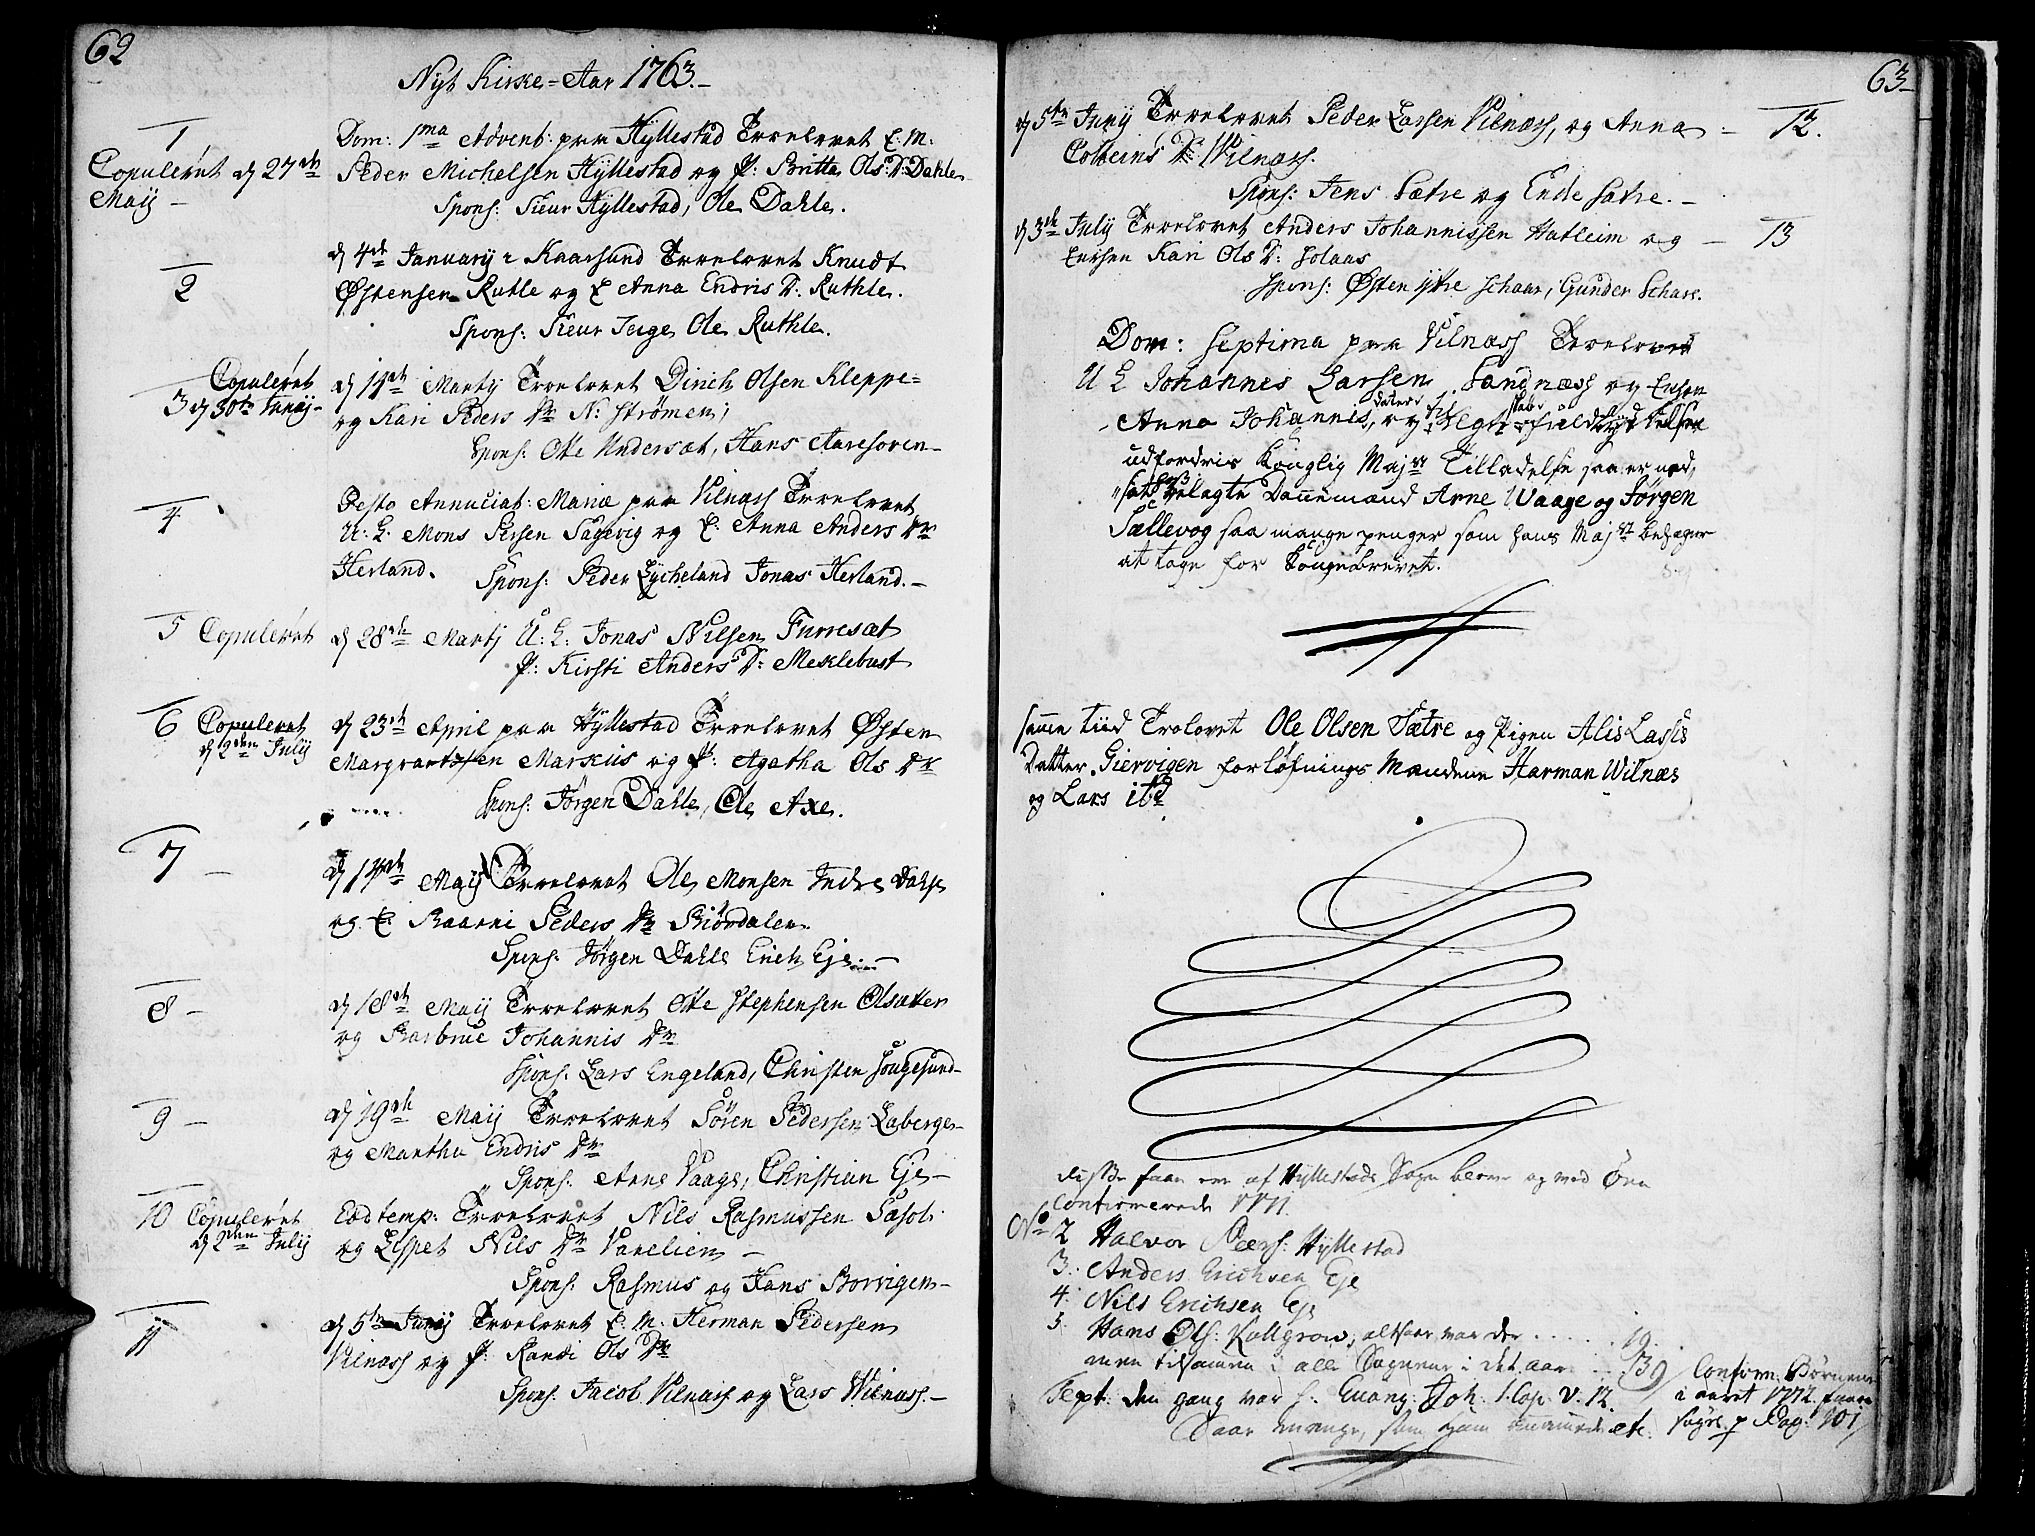 62
Nyt Kirke-Aar 1763.-
1
Copuleret d 27de
Maij -
Dom: 1ma Advent: paa Hyllestad Troelovet E. M.
Peder Michelsen Hyllestad og P: Britta Ols D: Dahle
Spons: Sieur Hyllestad, Ole Dahle.
2
d 4de Januarij i Kaarsund Troelovet Knudt
Østensen Rutle og E Anna Endris D: Ruthle.
Spons: Sieur Inge, Ole Ruthle.
3
Copuleret
d 30te Junij-
d 11de Martij Troelovet Dirich Olsen Kleppe=
og Kari Peders Dr N: Strømen;
Spons: Otte Undersæt, Hans Aaresoven-
4
Festo Annuciat: Mariæ paa Vilnæss Troelovet
U: L: Mons Persen Sagevig og E: Anna Anders Dr
Herland. Spons: Peder Lycheland Jonas Herland.-
5 Copuleret
d 28de Martj U: L: Jonas Nilsen Furresæt
P: Kirsti Anders D: Meklebust
6 Copuleret
d 2den Julij
d 23de April paa Hyllestad Troelovet Østen
Markus og P: Agatha Ols Dr
Spons: Jørgen Dahle, Ole Axe.
7 -
d 14de Maij Troelovet Ole Monsen Indre Dahle
og E: Raarni Peders Dr Biørdalen.
Spons: Jørgen Dahle Erich Eje.-
8 -
d 18de Maij Troelovet Otte Stephensen Olsætter
og Barbrue Johannis Dr
Spons: Lars Engeland, Christen Sougesund-
9 -
d 19de Maij Troelovet Søren Pedersen Laberge-
og Martha Endris Dr
Spons: Arne Vaage, Christian Eje-
10 Copuleret
d 2den Julij
Eod temp: Troelovet Nils Rasmussen Sasol:
og Lispet Nils Dr Varelien -
Spons: Rasmus og Hans Borvigen-
11
d 5te Junij Troelovet E. M. Herman Pedersen
Vilnæss og P: Randi Ols Dr
Spons: Jacob Vilnæss og Lars Wilnæss.-
63
d 5te Junij Troelovet Peder Larsen Vilnæss, og Anna - 12.
Colbeins D: Wilnæss.
Spons: Jens Sætre og Ende Sætre.-
d 3de Julij Troelovet Anders Johannissen Hatleim og - 13
Enken Kari Ols D: Solaas
Spons: Østen ytre Schaar, Gunder Schare.
Dom: Septima paa Vilnæss Troelovet
U L Johannes Larsen Sandnæss og Enken
Anna Johannis datter, og til
udfordris Konglig Majst Tilladelse saa er ned,
Dannemænd Arne Waage og Jørgen
Sællevog saa mange penger som hans Majst behager
at tage for Kongebrevet.
samme tiid Trolovet Ole Olsen Sætre og Pigen Alis Lasses
Datter Giervigen forlofnings Mændene Harman Wilnæs
og Lars ibd
disse faae em af Hyllestads Sogn bleve og med
Confirmerede 1771.
No 2 Halvor Peers: Hyllestad
3. Anders Erichsen Eje
4. Nils Erichsen Eje
5. Hans Ols: Kallgrow, altsaa var der ..... 19.
men tilsamen i alle Sognene i det aar .. 39
Text: den gang var S. Euang: Joh. 1. Cap. V. 12.
Saa mange, som ham annamede etc.
Confirm: Børnene
i aaret 1772 faaes
søge p Pag: 101